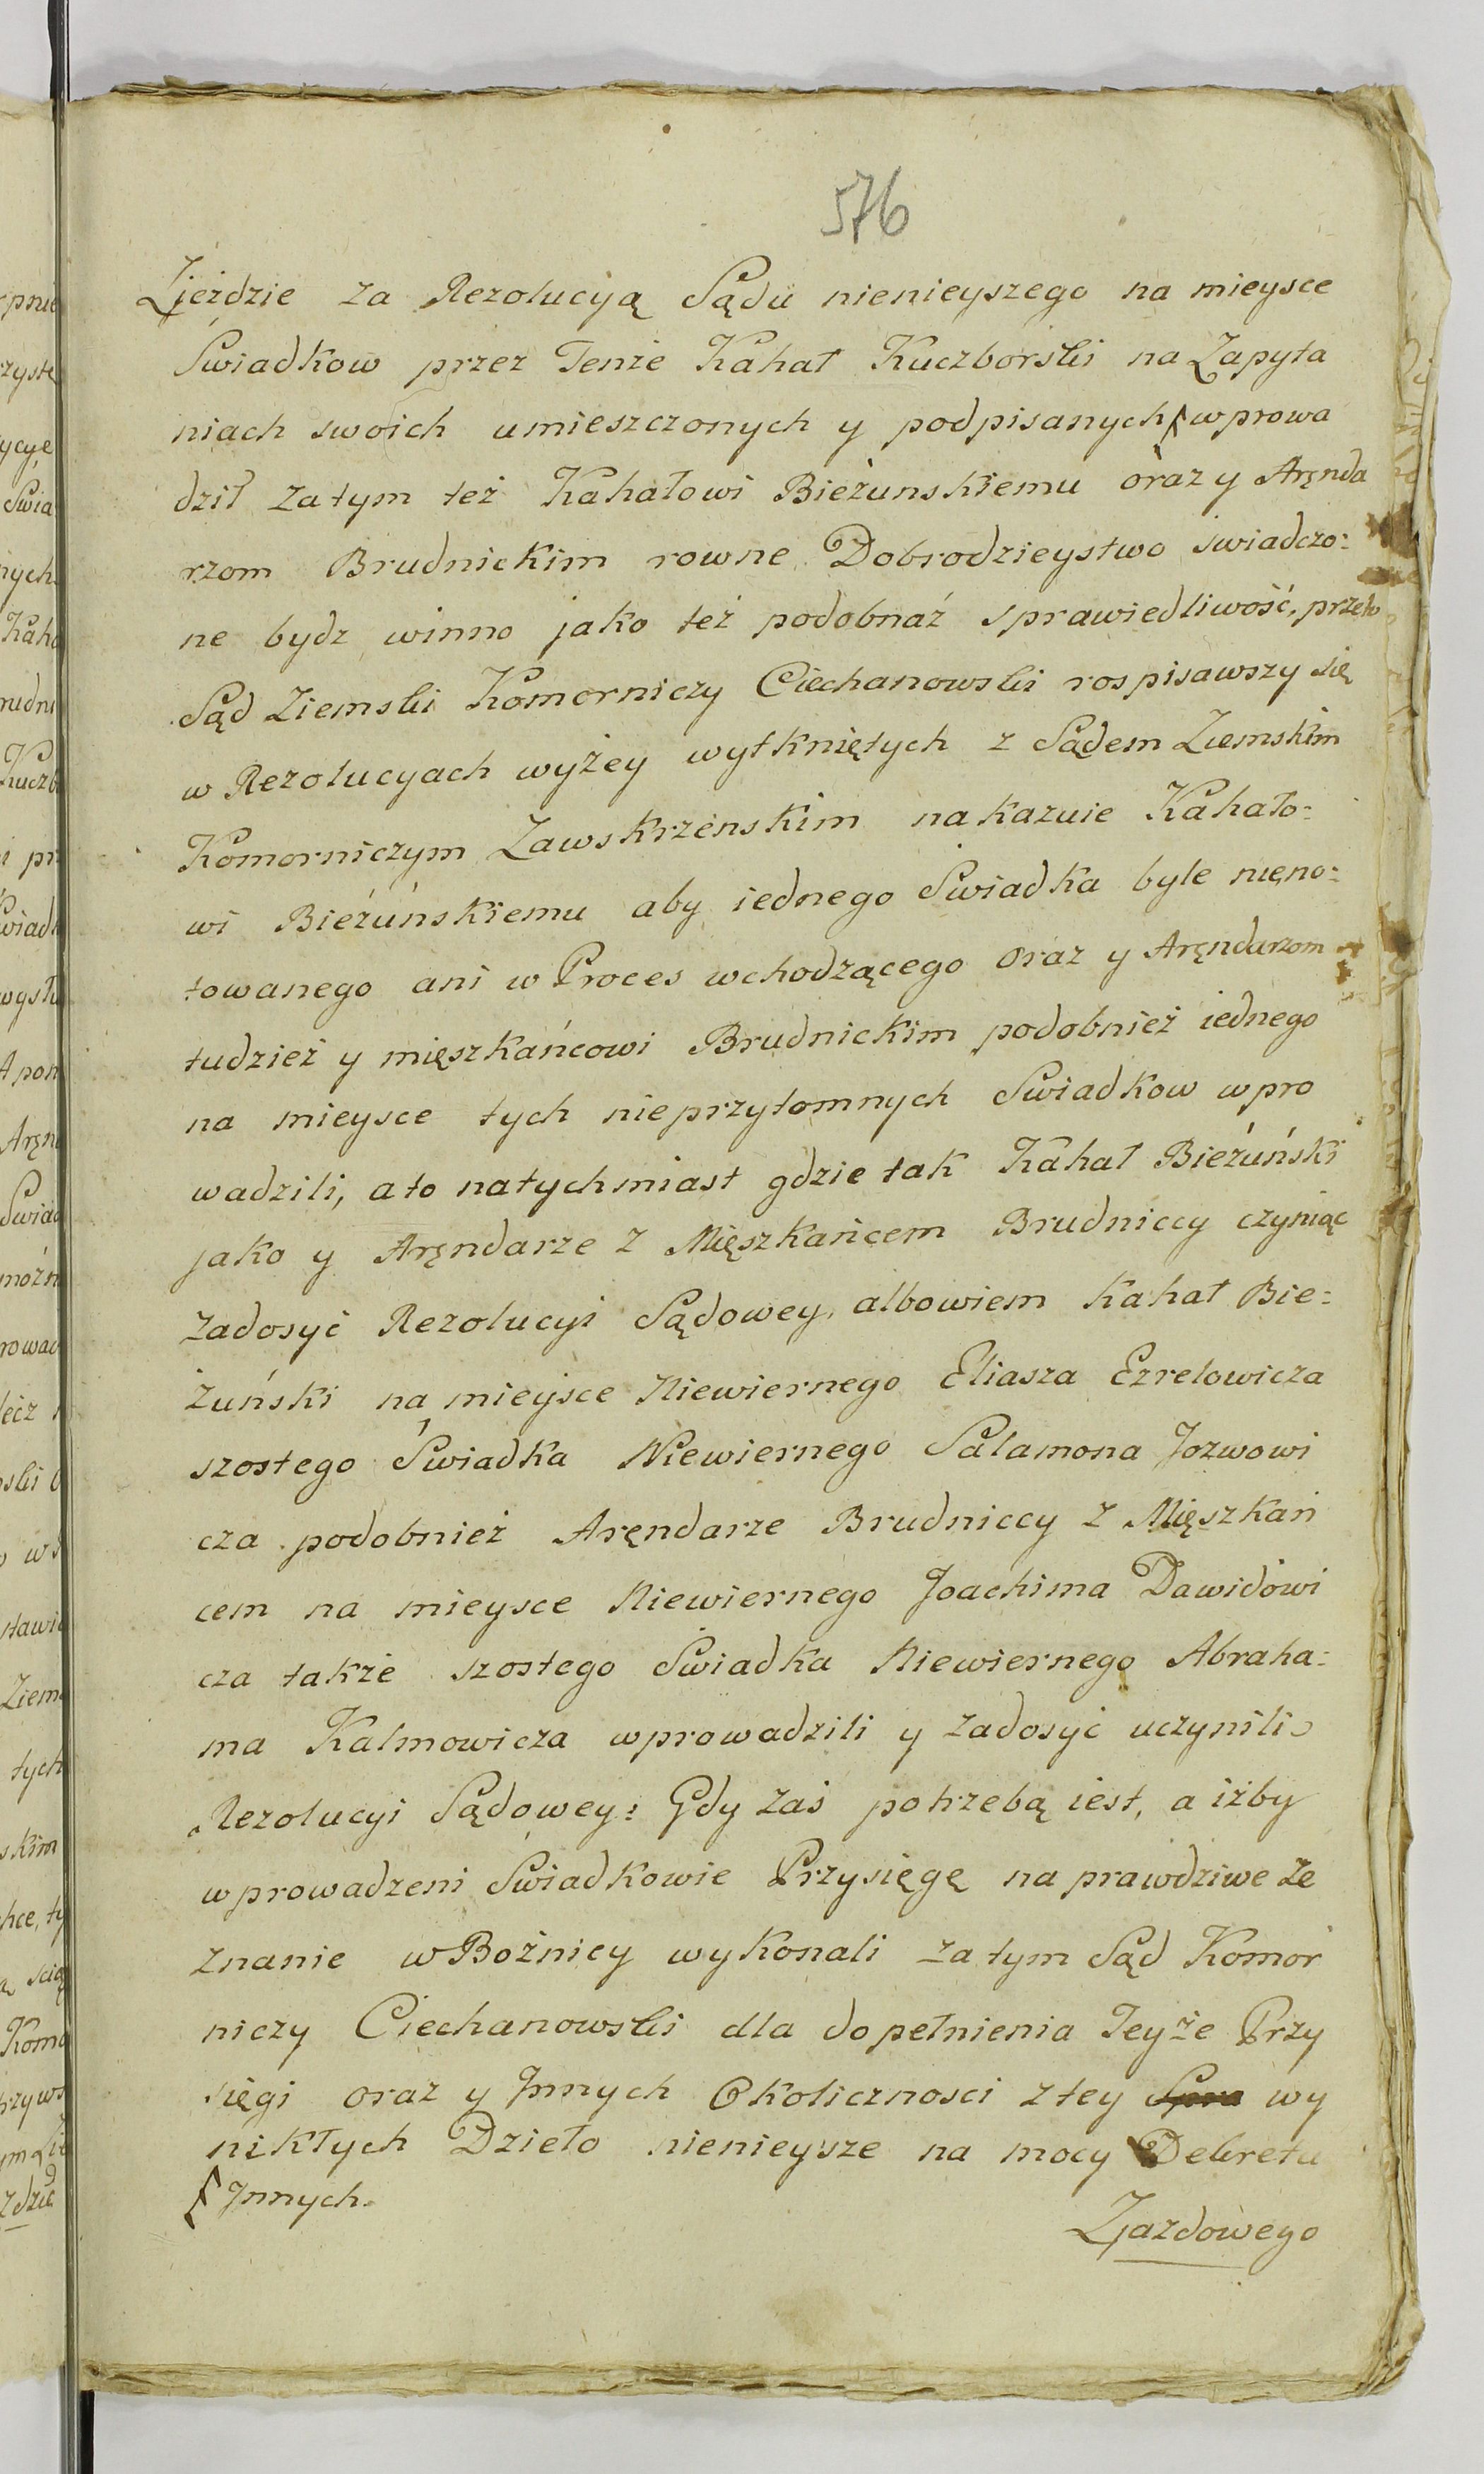 576
Zjeździe za Rezolucyą Sądu nienieyszego na mieysce
Swiadkow przez Tenże Kahał Kuczborski na Zapyta
niach swoich umieszczonych y podpisanych ſ wprowa
dził za tym też Kahałowi Bieżunskiemu oraz y Aręnda
rzom Brudnickim rowne Dobrodzieystwo swiadczo:
ne bydz winno jako też podobnaż sprawiedliwość, przeto
Sąd Ziemski Komorniczy Ciechanowski rospisawszy się
w Rezolucyach wyżey wytkniętych z Sądem Ziemskim
Komorniczym Zawskrzenskim nakazuie Kahało:
wi Bieżuńskiemu aby iednego Swiadka byle nięno:
towanego ani w Proces wchodzącego oraz y Aręndarzom
tudzież y mięszkańcowi Brudnickim podobnież iednego
na mieysce tych nieprzytomnych Swiadkow wpro
wadzili, a to natychmiast gdzie tak Kahał Bieżuński
jako y Aręndarze z Mięszkańcem Brudniccy czyniąc
zadosyć Rezolucyi Sądowey, albowiem Kahał Bie:
żuński na mieysce Niewiernego Eliasza Ezrelowicza
szostego Swiadka Niewiernego Salamona Jozwowi
cza podobnież Aręndarze Brudniccy z Mięszkań
cem na mieysce Niewiernego Joachima Dawidowi
cza także szostego Swiadka Niewiernego Abraha:
ma Kalmowicza wprowadzili y zadosyć uczynili
Rezolucyi Sądowey: Gdy zaś potrzebą iest, a iżby
wprowadzeni Swiadkowie Przysięgę na prawdziwe ze
znanie w Bożnicy wykonali za tym Sąd Komor
niczy Ciechanowski dla dopełnienia Teyże Przy
sięgi oraz y Jnnych Okolicznosci z tey Spra wy
nikłych Dzieło nienieysze na mocy Dekretu
ſ Jnnych.
Zjazdowego